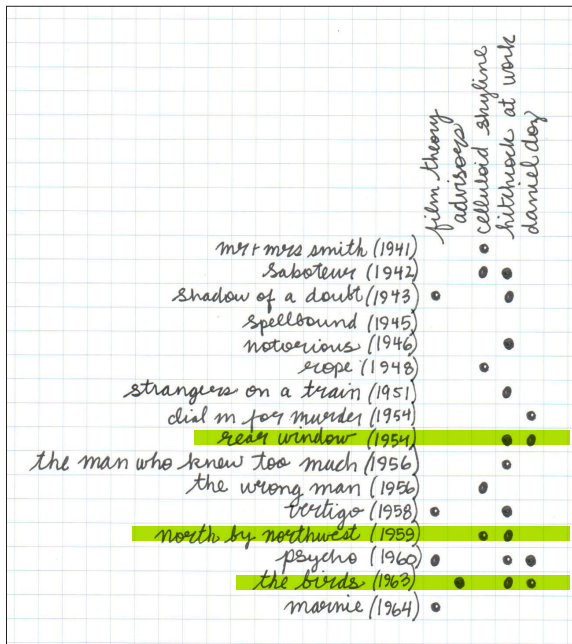 film theory
advisors
celluloid skyline
hitchcock at work
daniel doz
mr + mrs smith (1941)
saboteur (1942)
shadow of a doubt (1943)
spellbound (1945)
notorious (1946)
rope (1948)
strangers on a train (1951)
dial m for murder (1954)
rear window (1954)
the man who knew too much (1956)
the wrong man (1956)
vertigo (1958)
north by northwest (1959)
psycho (1960)
the birds (1963)
marnie (1964)